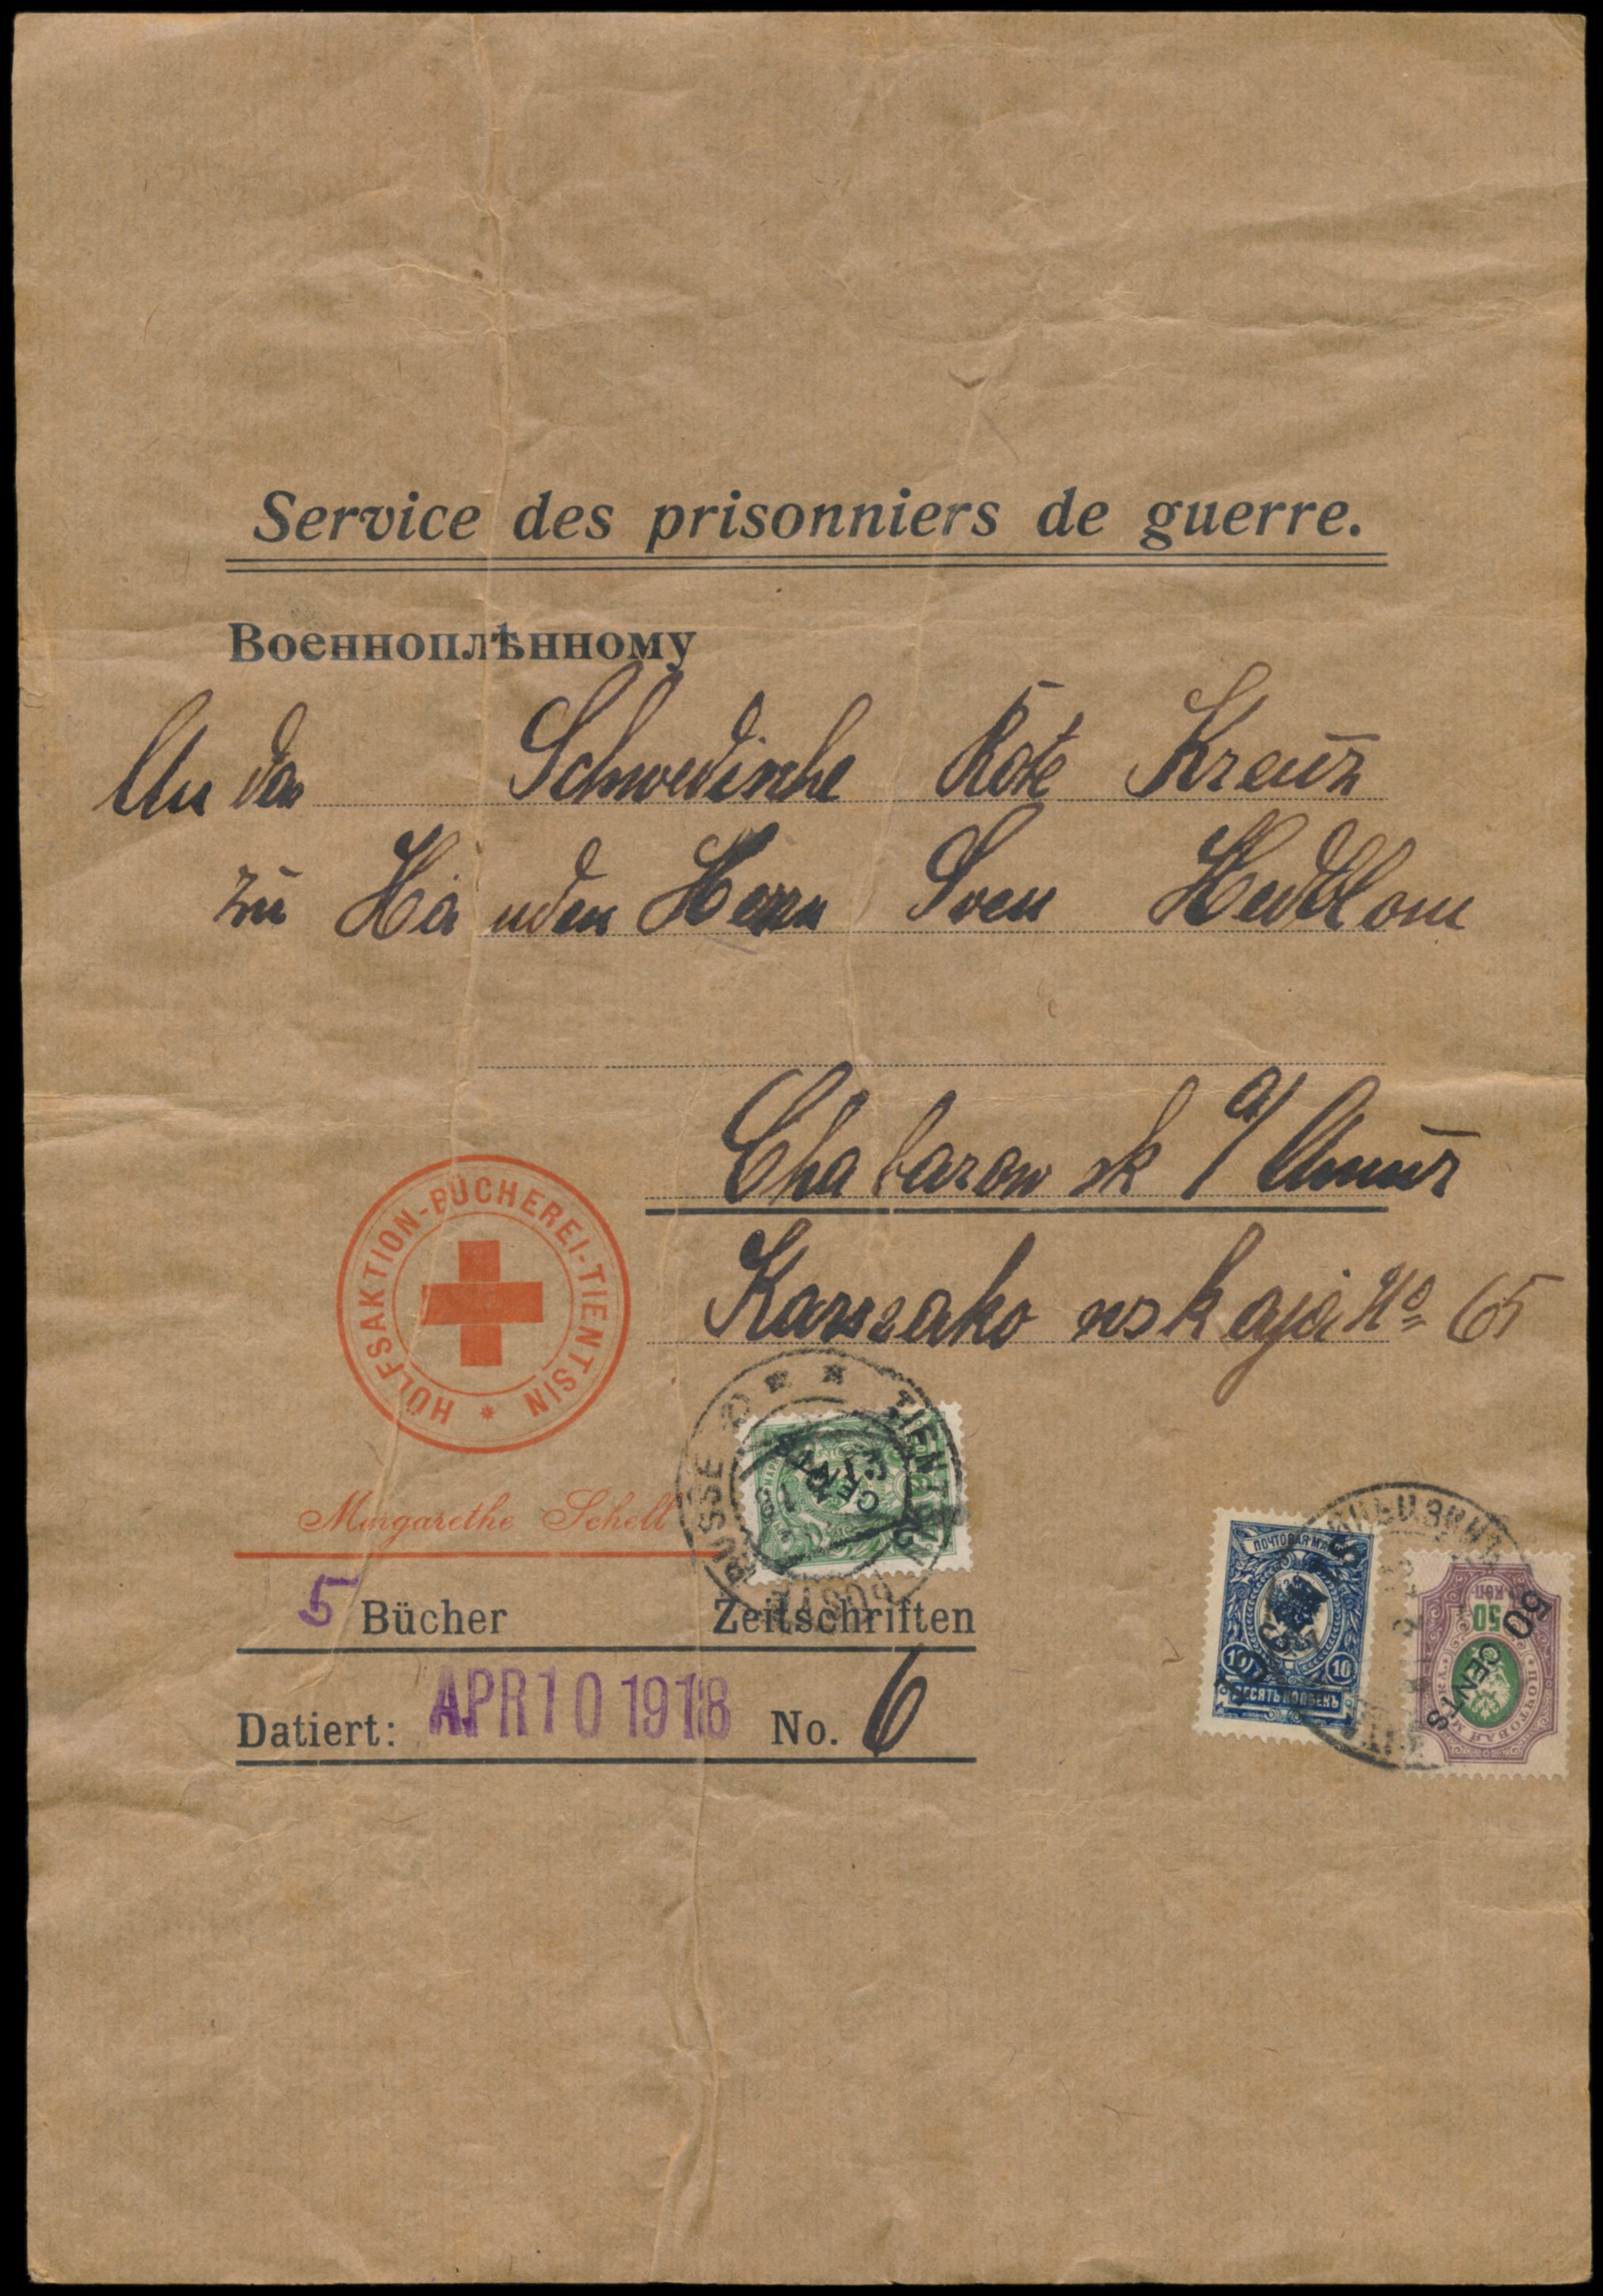 Service des prisonniers de guerre.
Военноплѣнному
An das Schwedische Rote Kreuz
zu Händen Herrn Sven Hedblom
Chabarowsk a/Amur
Karsakowskaja No 65
HÜLFSAKTION-BÜCHEREI-TIENTSIN *
Margarethe Schell
RUSSE TIENTSIN POSTE
CENT
5 Bücher Zeitschriften
Datiert: APR 10 1918 No. 6
ПОЧТОВАЯ МАРКА
10 10
ДЕСЯТЬ КОПѢЕКЪ
50 КОП
50 CENTS
ПОЧТОВАЯ МАРКА